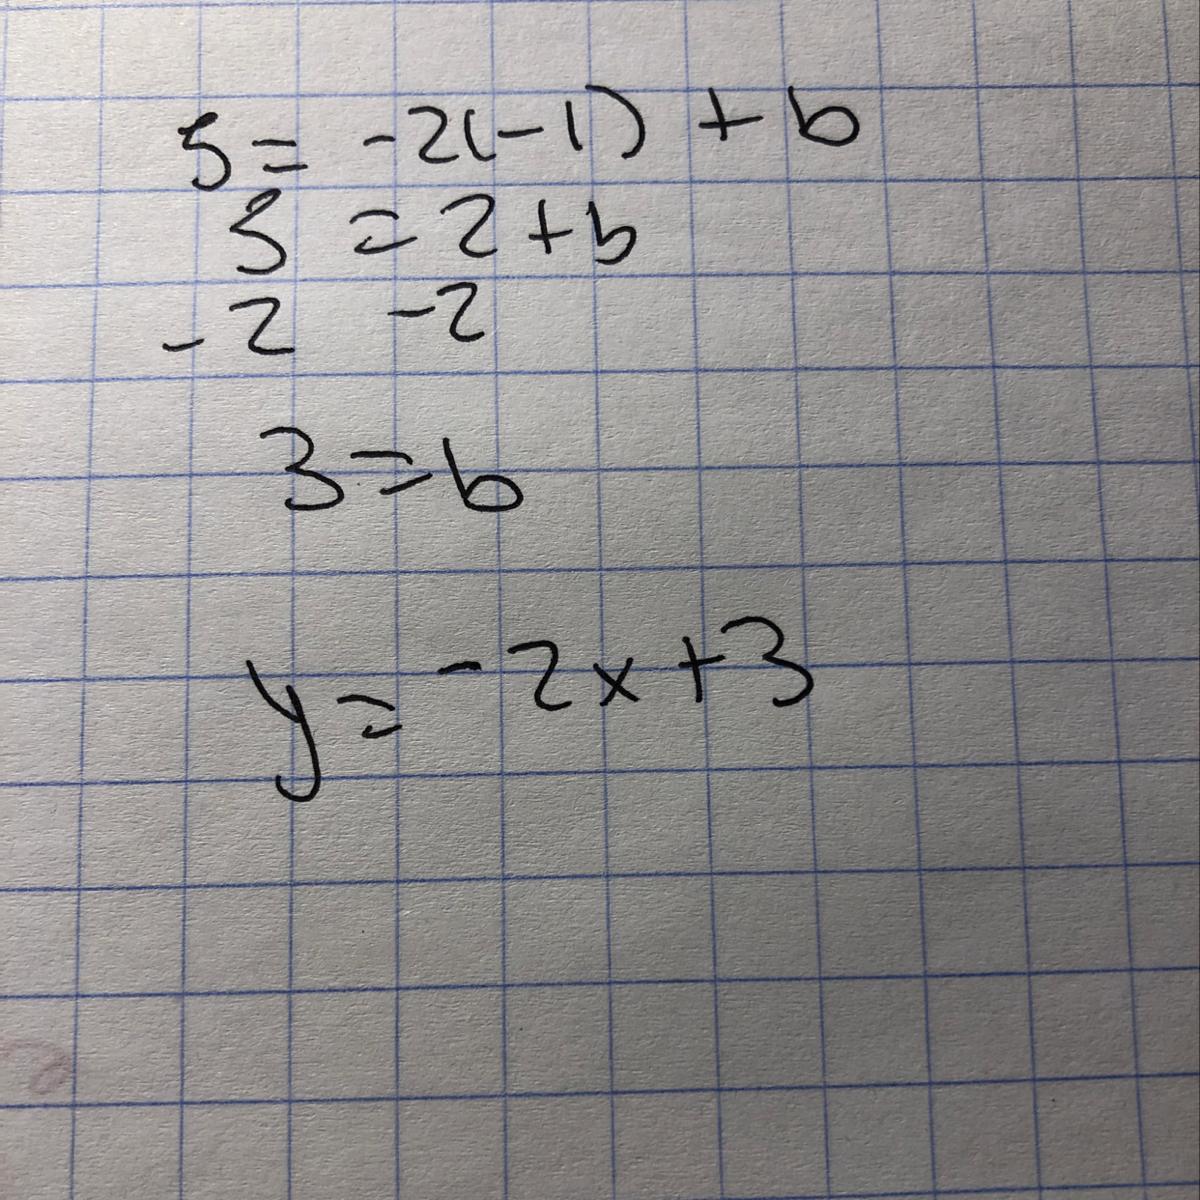 5 = -2(-1) + b
5 = 2 + b
-2 -2
3 = b
y = -2x + 3